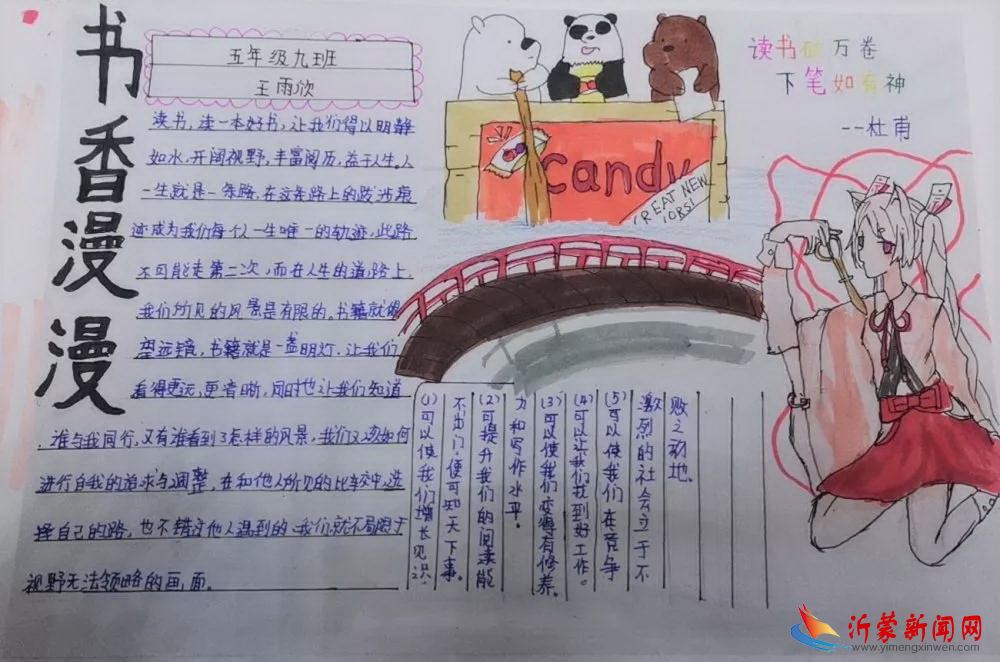 书香漫漫
五年级九班
王雨欣
读书，读一本好书，让我们得以明静
如水，开阔视野，丰富阅历，益于人生。人
一生就是一条路，在这条路上的跋涉痕
迹成为我们每个人一生唯一的轨迹，此路
不可能走第二次，而在人生的道路上，
我们所见的风景是有限的。书籍就像
望远镜，书籍就是一盏明灯，让我们
看得更远，更清晰，同时也让我们知道
，谁与我同行，又有谁看到了怎样的风景，我们又该如何
进行自我的追求与调整，在和他人所见的比较中，选
择自己的路，也不错过他人遇到的，我们就不局限于
视野无法领略的画面。
candy
GREAT NEW
JOBS!
读书破万卷
下笔如有神
--杜甫
(1)可以使我们增长见识。
不出门，便可知天下事。
(2)可提升我们的阅读能
力和写作水平。
(3)可以使我们变得有修养。
(4)可以让我们找到好工作。
(5)可以使我们在竞争
激烈的社会立于不
败之动地。
沂蒙新闻网
www.yimengxinwen.com